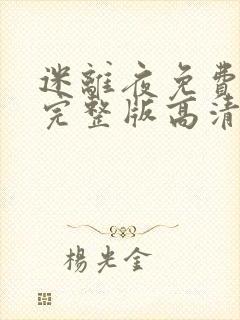 迷離夜免費
完整版高清
楊光金